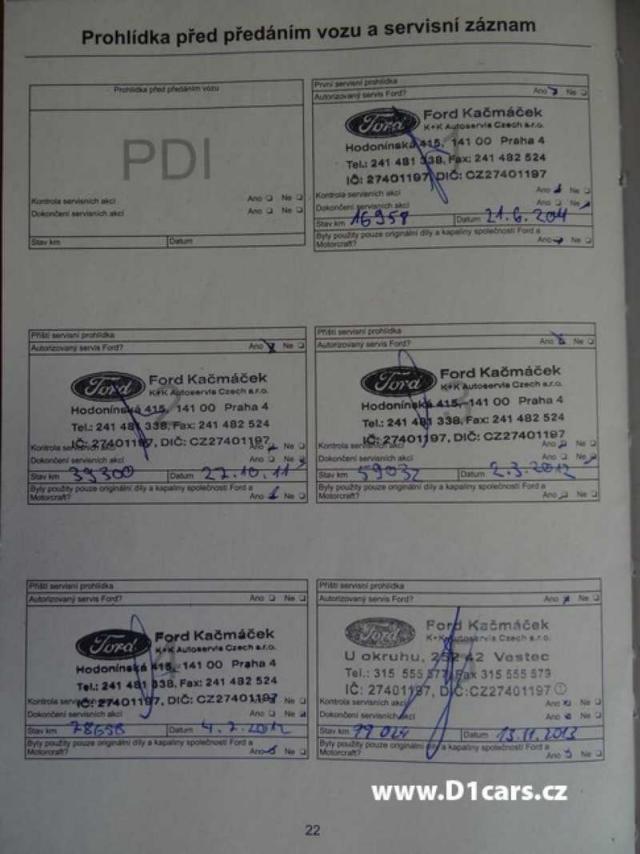 Prohlídka před předáním vozu a servisní záznam
Prohlídka před předáním vozu
PDI
Kontrola servisních akcí Ano Ne
Dokončení servisních akcí Ano Ne
Stav km Datum
První servisní prohlídka
Autorizovaný servis Ford? Ano Ne
Ford Ford Kačmáček
K+K Autoservis Czech s.r.o.
Hodonínská 415, 141 00 Praha 4
Tel.: 241 481 338, Fax: 241 482 524
IČ: 27401197, DIČ: CZ27401197
Kontrola servisních akcí Ano Ne
Dokončení servisních akcí Ano Ne
Stav km 16958 Datum 21.6.2011
Byly použity pouze originální díly a kapaliny společnosti Ford a
Motorcraft? Ano Ne
Příští servisní prohlídka
Autorizovaný servis Ford? Ano Ne
Ford Ford Kačmáček
K+K Autoservis Czech s.r.o.
Hodonínská 415, 141 00 Praha 4
Tel.: 241 481 338, Fax: 241 482 524
IČ: 27401197, DIČ: CZ27401197
Kontrola servisních akcí Ano Ne
Dokončení servisních akcí Ano Ne
Stav km 39300 Datum 27.10.11
Byly použity pouze originální díly a kapaliny společnosti Ford a
Motorcraft? Ano Ne
Příští servisní prohlídka
Autorizovaný servis Ford? Ano Ne
Ford Ford Kačmáček
K+K Autoservis Czech s.r.o.
Hodonínská 415, 141 00 Praha 4
Tel.: 241 481 338, Fax: 241 482 524
IČ: 27401197, DIČ: CZ27401197
Kontrola servisních akcí Ano Ne
Dokončení servisních akcí Ano Ne
Stav km 59032 Datum 2.3.2012
Byly použity pouze originální díly a kapaliny společnosti Ford a
Motorcraft? Ano Ne
Příští servisní prohlídka
Autorizovaný servis Ford? Ano Ne
Ford Ford Kačmáček
K+K Autoservis Czech s.r.o.
Hodonínská 415, 141 00 Praha 4
Tel.: 241 481 338, Fax: 241 482 524
IČ: 27401197, DIČ: CZ27401197
Kontrola servisních akcí Ano Ne
Dokončení servisních akcí Ano Ne
Stav km 78658 Datum 4.7.2012
Byly použity pouze originální díly a kapaliny společnosti Ford a
Motorcraft? Ano Ne
Příští servisní prohlídka
Autorizovaný servis Ford? Ano Ne
Ford Ford Kačmáček
K+K Autoservis Czech s.r.o.
U okruhu, 252 42 Vestec
Tel.: 315 555 577, Fax 315 555 579
IČ: 27401197, DIČ:CZ27401197 ①
Kontrola servisních akcí Ano Ne
Dokončení servisních akcí Ano Ne
Stav km 99024 Datum 13.11.2013
Byly použity pouze originální díly a kapaliny společnosti Ford a
Motorcraft? Ano Ne
www.D1cars.cz
22